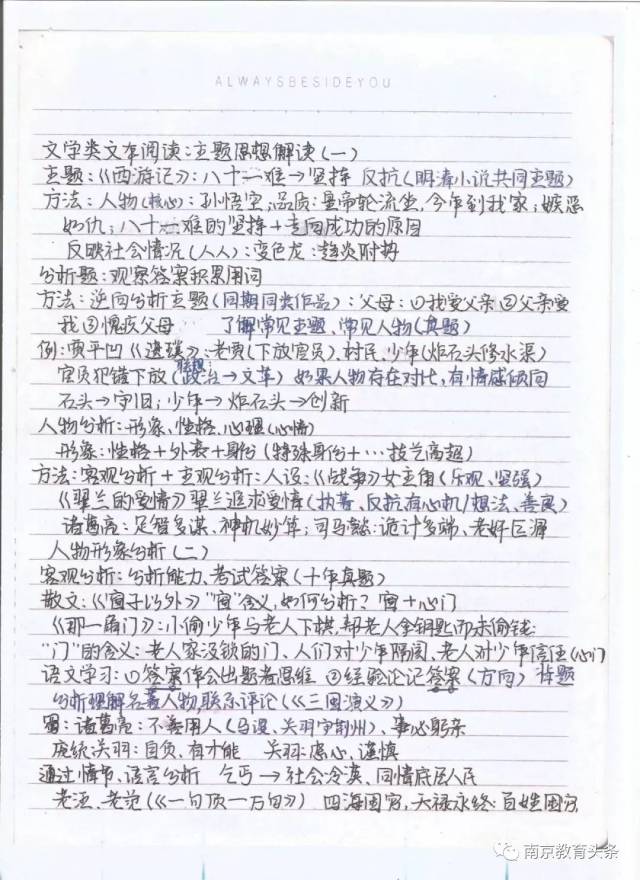 ALWAYSBESIDEYOU
文学类文本阅读:主题思想解读(一)
主题:《西游记》:八十一难→坚持 反抗(明清小说共同主题)
方法:人物(核心):孙悟空,品质:皇帝轮流坐,今年到我家;嫉恶
如仇;八十一难的坚持+走向成功的原因
反映社会情况(人人):变色龙:趋炎附势
分析题:观察答案积累用词
方法:逆向分析主题(同期同类作品):父母:①我爱父亲②父亲爱
我③愧疚父母 了解常见主题、常见人物(真题)
例:贾平凹《遗璞》:老贾(下放官员)、村民、少年(炸石头修水渠)
官员犯错下放(政治→文革) 如果人物存在对比,有情感倾向
联想
石头→守旧;少年→炸石头→创新
人物分析:形象、性格、心理(心情)
形象:性格+外表+身份(特殊身份+…技艺高超)
方法:客观分析+主观分析:人设:《战争》女主角(乐观、坚强)
《翠兰的爱情》翠兰追求爱情(执著、反抗有心机/想法、善良)
诸葛亮:足智多谋、神机妙算;司马懿:诡计多端、老奸巨滑
人物形象分析(二)
客观分析:分析能力、考试答案(十年真题)
散文:《窗子以外》"窗"含义,如何分析?窗+心门
《那一扇门》:小偷少年与老人下棋,帮老人拿钥匙而未偷钱
"门"的含义:老人家没锁的门、人们对少年隔阂、老人对少年信任(心门
语文学习:①答案体会出题者思维 ②经验论记答案(方向) 掉题
分析理解名著人物,联系评论(《三国演义》)
蜀:诸葛亮:不善用人(马谡、关羽守荆州)、事必躬亲
庞统关羽:自负、有才能 关羽:忠心、谨慎
通过情节、语言分析 乞丐→社会冷漠,同情底层人民
老汪、老范(《一句顶一万句》) 四海困穷,天禄永终:百姓困穷
南京教育头条